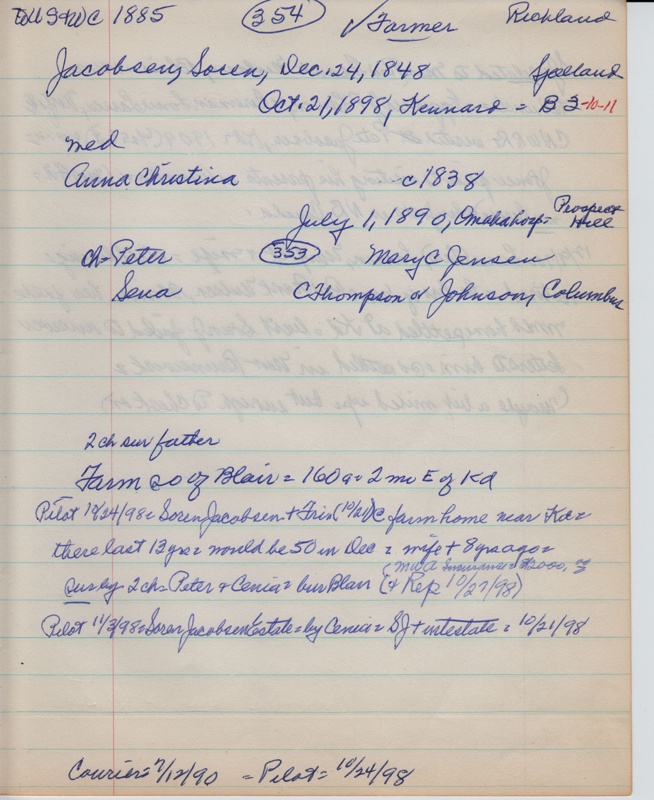 1885 354 ✓Farmer Richland
Jacobsen, Soren, Dec. 24, 1848 Sjælland
Oct. 21, 1898, Kennard = B 3-10-11
med
Anna Christina c1838
July 1, 1890, Omaha hosp = Prospect Hill
ch = Peter 353 Mary C Jensen
Sena C Thompson or Johnson, Columbus
2 ch sur father
Farm so of Blair = 160 a = 2 mi E of Kd
Pilot 10/24/98 = Soren Jacobsen + Fri (10/21) @ farm home near Kd =
there last 13 yrs = would be 50 in Dec = wife + 8 yrs ago =
(MWA Insurance = $2000,
sur by 2 ch = Peter + Cenia = bur Blair (+ Rep 10/27/98)
Pilot 11/3/98 = Soren Jacobsen Estate = by Cenia = SJ + intestate = 10/21/98
Courier = 7/12/90 = Pilot = 10/24/98